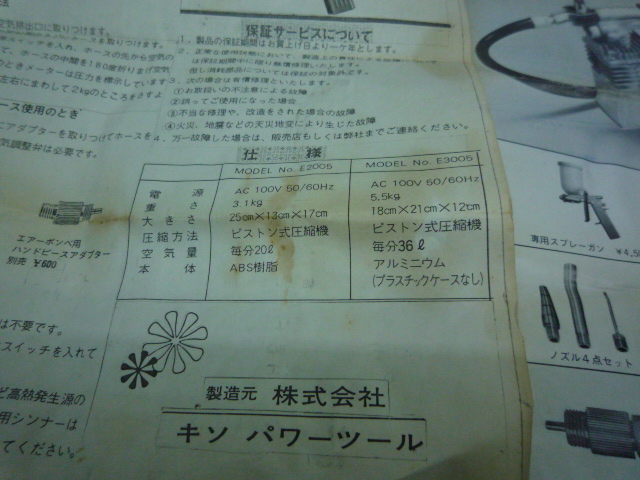 保証サービスについて
1. 製品の保証期間はお買上げ日より一ケ年とします。
は保証期間中に限り無償修理いたします。
但し消耗部品については保証の対象外です。
3. 次の場合は有償修理といたします。
①お取扱いの不注意による故障
②誤ってご使用になった場合
③不当な修理や、改造をされた場合の故障
④火災、地震などの天災地変により生じた故障
4. 万一故障した場合は、販売店もしくは弊社までご連絡ください。
仕様
MODEL No. E2005 MODEL No. E3005
電源 AC 100V 50/60Hz AC 100V 50/60Hz
重さ 3.1kg 5.5kg
大きさ 25cm×13cm×17cm 18cm×21cm×12cm
圧縮方法 ピストン式圧縮機 ピストン式圧縮機
空気量 毎分20ℓ 毎分36ℓ
本体 ABS樹脂 アルミニウム
(プラスチックケースなし)
製造元 株式会社
キソ パワーツール
気排出口に取りつけます。
スイッチを入れ、ホースの先から空気の
て、ホースの中間を180度折りまげ空気
のときメーターは圧力を標示しています
左右にまわして2kgのところをさすよ
ース使用のとき
アダプターを取りつけてホースを
気調整弁は必要です。
エアーボンベ用
ハンドピースアダプター
別売 ¥600
は不要です。
スイッチを入れて
ど高熱発生源の
用シンナーは
てください。
専用スプレーガン ¥4,5
ノズル4点セット